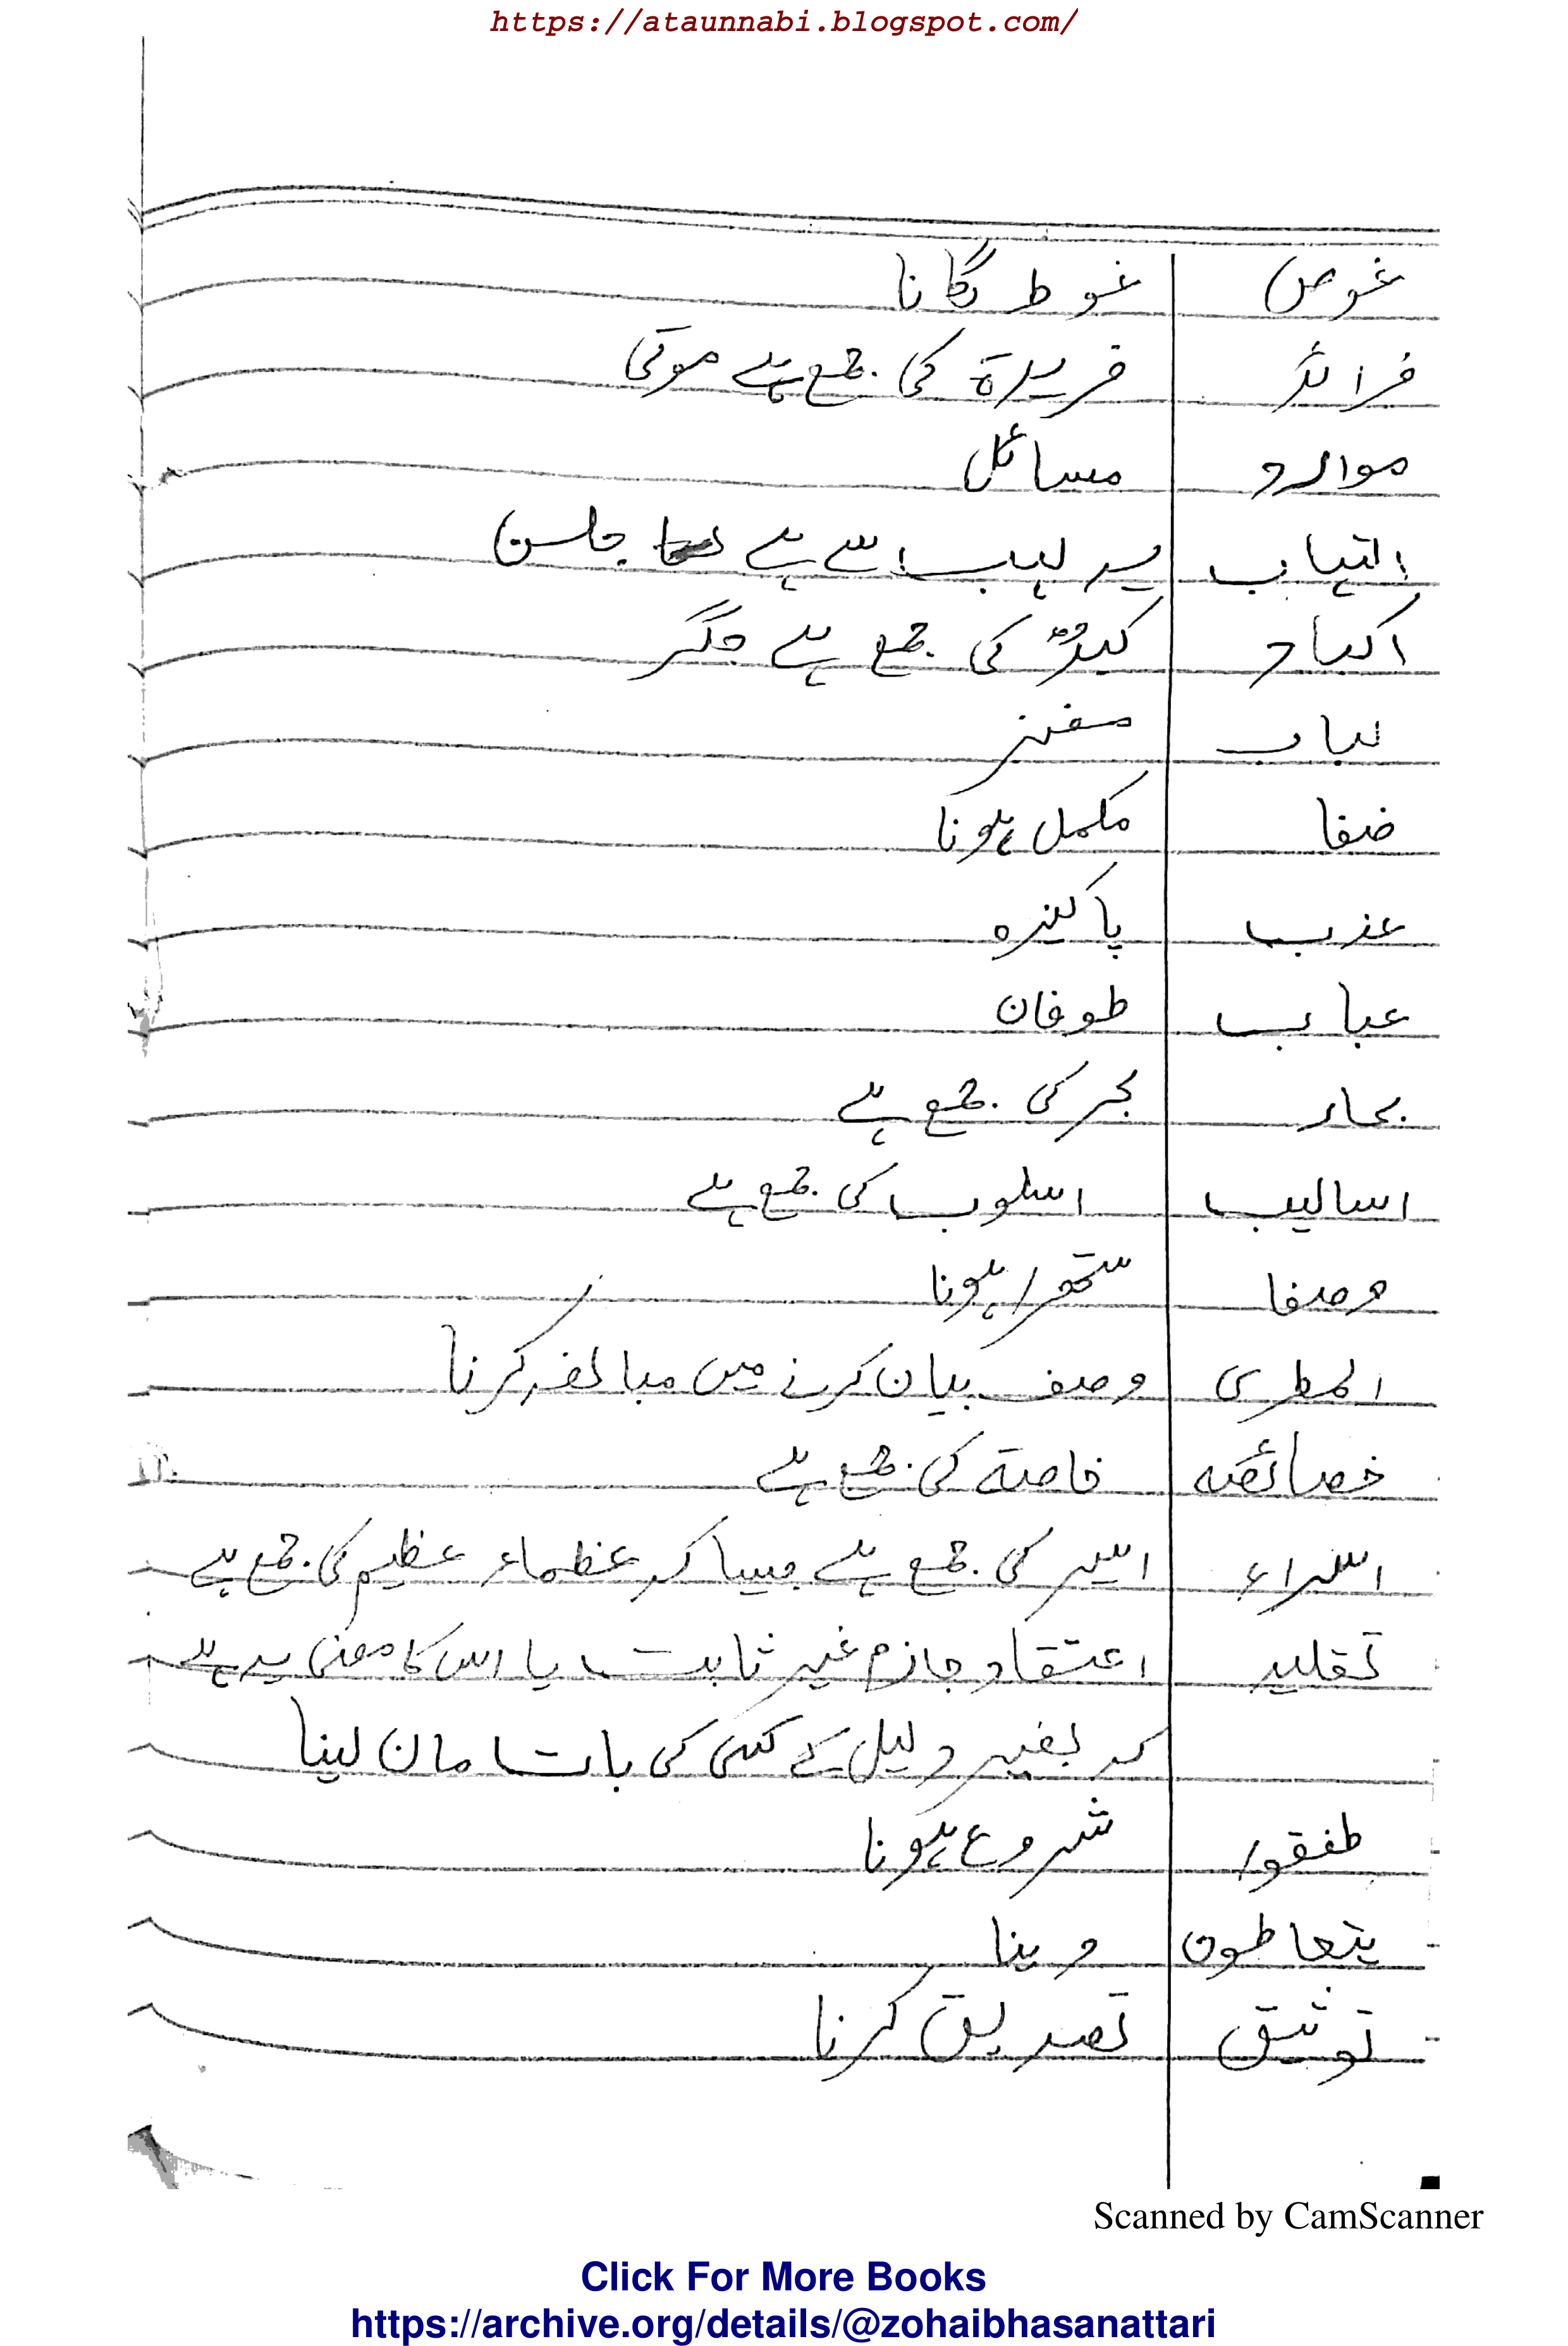 https://ataunnabi.blogspot.com/
غوص غوطہ لگانا
فرائد فریدۃ کی جمع ہے موتی
موارد مسائل
التہاب یہ لہب سے ہے جلن
اکباد کبدٌ کی جمع ہے جگر
لباب مغز
ضفا مکمل ہونا
عذب پاکیزہ
عباب طوفان
بحار بحر کی جمع ہے
اسالیب اسلوب کی جمع ہے
وصفا ستھرا ہونا
المطری وصف بیان کرنے میں مبالغہ کرنا
خصائصہ خاصۃ کی جمع ہے
اسراء اسیر کی جمع ہے جیسا کہ عظماء عظیم کی جمع ہے
تقلید اعتقاد جازم غیر ثابت یا اس کا معنی یہ ہے
کہ بغیر دلیل کے کسی کی بات مان لینا
طفقوا شروع ہونا
یتعاطون دینا
توثیق تصدیق کرنا
Scanned by CamScanner
Click For More Books
https://archive.org/details/@zohaibhasanattari